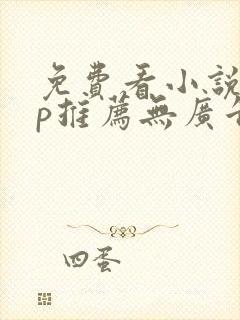 免費看小說
p推薦無廣告
四蛋